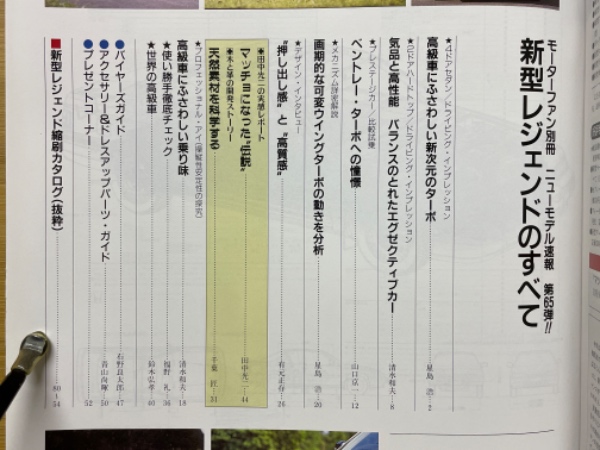 モーターファン別冊 ニューモデル速報 第65弾!!
新型レジェンドのすべて
★4ドアセダン/ドライビング・インプレッション
高級車にふさわしい新次元のターボ……星島 浩…2
★2ドアハードトップ/ドライビング・インプレッション
気品と高性能 バランスのとれたエグゼクティブカー……清水和夫…8
★プレステージカー/比較試乗
ベントレー・ターボへの憧憬……山口京一…12
★メカニズム詳密解説
画期的な可変ウイングターボの動きを分析……星島 浩…20
★デザイン・インタビュー
“押し出し感”と“高質感”……有元正存…26
●田中光二の実感レポート
マッチョになった“伝説”……田中光二…44
●木と革の開発ストーリー
天然素材を科学する……千葉 匠…31
★プロフェッショナル・アイ(操縦性安定性の探究)
高級車にふさわしい乗り味……清水和夫…18
★使い勝手徹底チェック……福野 礼…36
★世界の高級車……鈴木宏孝…40
●バイヤーズガイド……石野良太郎…47
●アクセサリー&ドレスアップパーツ・ガイド……青山尚暉…50
●プレゼントコーナー……52
■新型レジェンド縮刷カタログ(抜粋)……80〜54